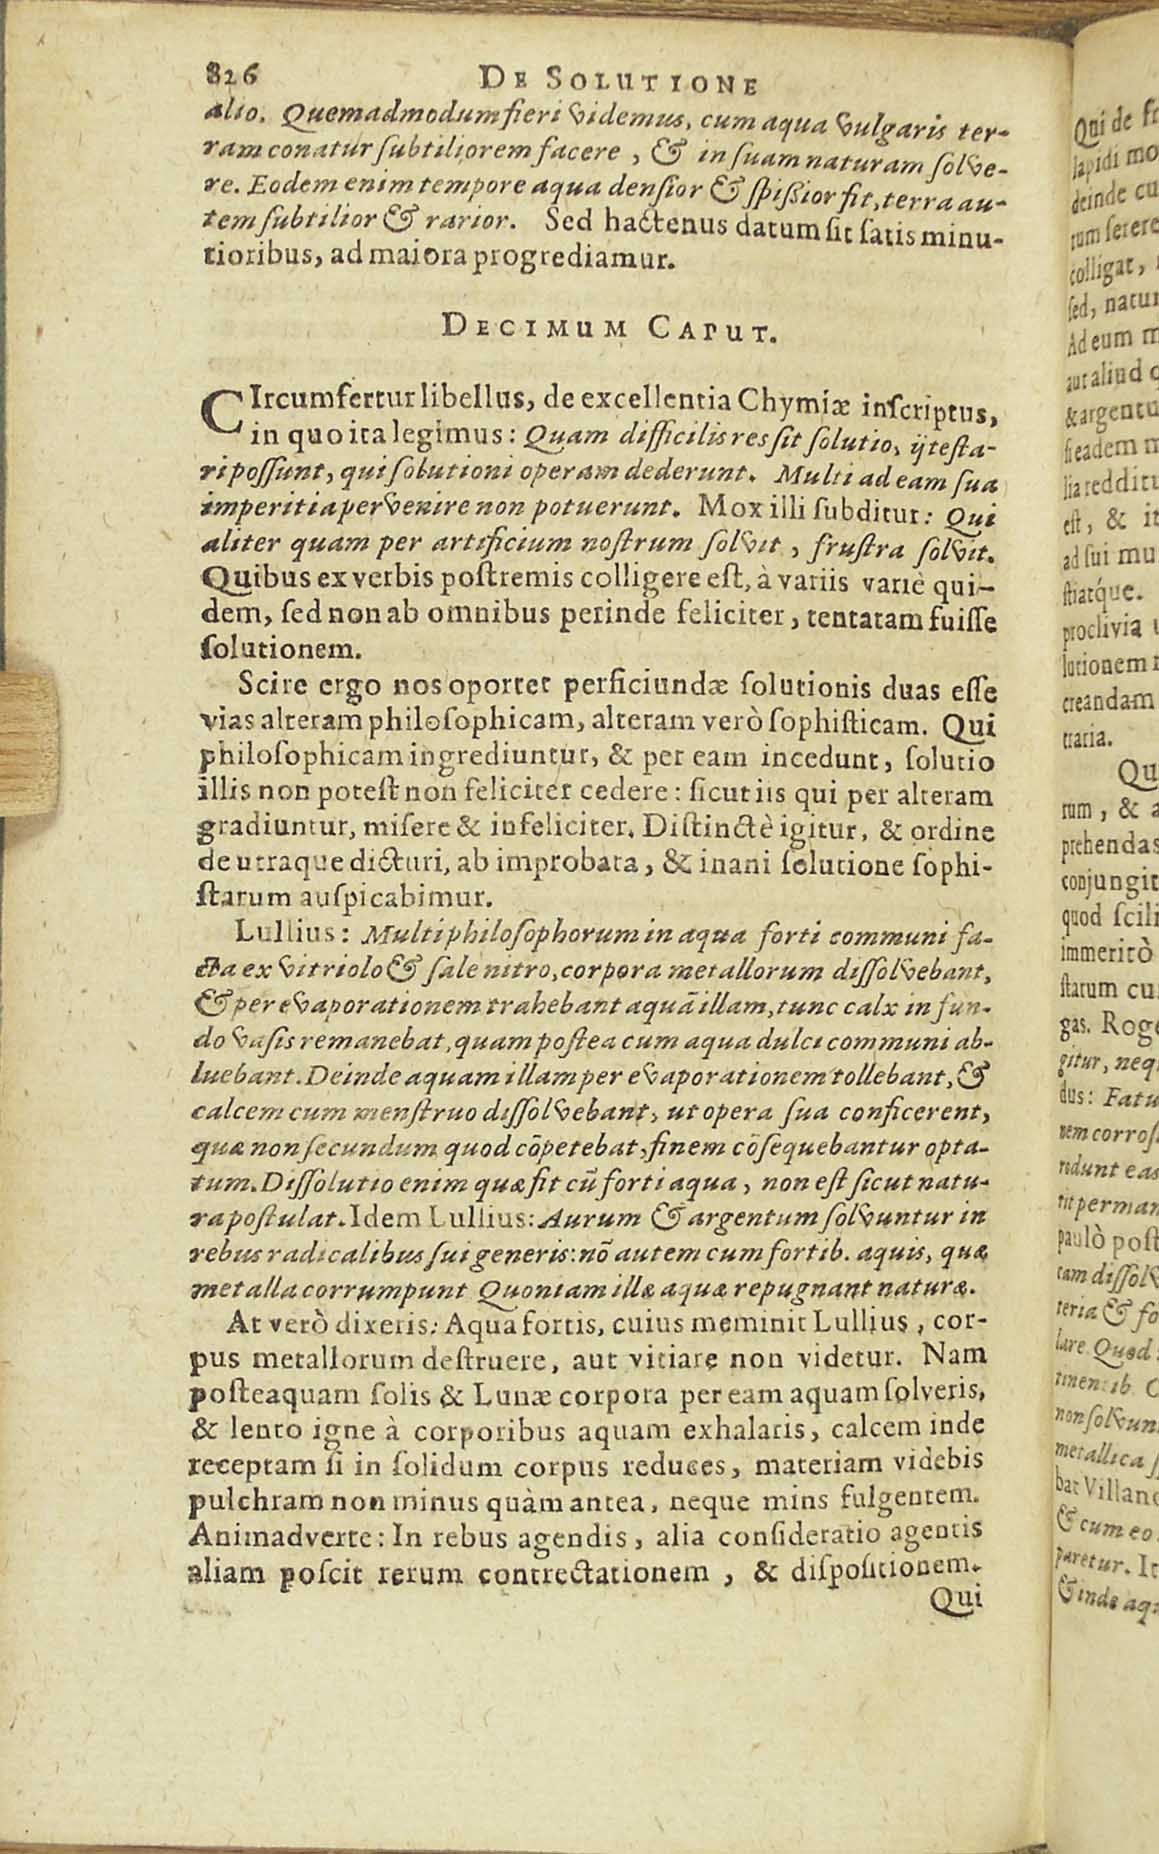 826 DE SOLUTIONE
alio. Quemadmodum fieri videmus, cum aqua vulgaris ter-
ram conatur subtiliorem facere, & in suam naturam solve-
re. Eodem enim tempore aqua densior & spißior fit, terra au-
tem subtilior & rarior. Sed hactenus datum sit satis minu-
tioribus, ad maiora progrediamur.
DECIMUM CAPUT.
CIrcumfertur libellus, de excellentia Chymiæ inscriptus,
in quo ita legimus: Quam difficilis res sit solutio, ij testa-
ri possunt, qui solutioni operam dederunt. Multi ad eam sua
imperitia pervenire non potuerunt. Mox illi subditur: Qui
aliter quam per artificium nostrum solvit, frustra solvit.
Quibus ex verbis postremis colligere est, à variis variè qui-
dem, sed non ab omnibus perinde feliciter, tentatam fuisse
solutionem.
Scire ergo nos oportet perficiundæ solutionis duas esse
vias alteram philosophicam, alteram verò sophisticam. Qui
philosophicam ingrediuntur, & per eam incedunt, solutio
illis non potest non feliciter cedere: sicut iis qui per alteram
gradiuntur, misere & infeliciter. Distinctè igitur, & ordine
de utraque dicturi, ab improbata, & inani solutione sophi-
starum auspicabimur.
Lullius: Multi philosophorum in aqua forti communi fa-
cta ex vitriolo & sale nitro, corpora metallorum dissolvebant,
& per evaporationem trahebant aquã illam, tunc calx in fun-
do vasis remanebat, quam postea cum aqua dulci communi ab-
luebant. Deinde aquam illam per evaporationem tollebant, &
calcem cum menstruo dissolvebant, ut opera sua conficerent,
quæ non secundum quod cõpetebat, finem cõsequebantur opta-
tum. Dissolutio enim quæ fit cũ forti aqua, non est sicut natu-
ra postulat. Idem Lullius: Aurum & argentum solvuntur in
rebus radicalibus sui generis: nõ autem cum fortib. aquis, quæ
metalla corrumpunt Quoniam illæ aquæ repugnant naturæ.
At verò dixeris: Aqua fortis, cuius meminit Lullius, cor-
pus metallorum destruere, aut vitiare non videtur. Nam
posteaquam solis & Lunæ corpora per eam aquam solveris,
& lento igne à corporibus aquam exhalaris, calcem inde
receptam si in solidum corpus reduces, materiam videbis
pulchram non minus quàm antea, neque mins fulgentem.
Animadverte: In rebus agendis, alia consideratio agentis
aliam poscit rerum contrectationem, & dispositionem.
Qui
Qui de
lapidi
deinde
rum serere
colligat,
sed,
Ad eum
aut aliud
& argentu
si eadem
lia redditu
est, & it
ad sui mu
stiatq́ue.
proclivia
lutionem
creandam
traria.
Qu
rum, & a
prehendas
conjungit
quod scili
immeritò
starum cu
gas. Roge
gitur, neq
dus: Fatu
nem corros
rodunt eas
rit perman
paulò post
tam dissolv
teria & fo
lare. Quod
tinentib.
non solvun
metallica
bat Villano
& cum eo
paretur. It
& inde aqu